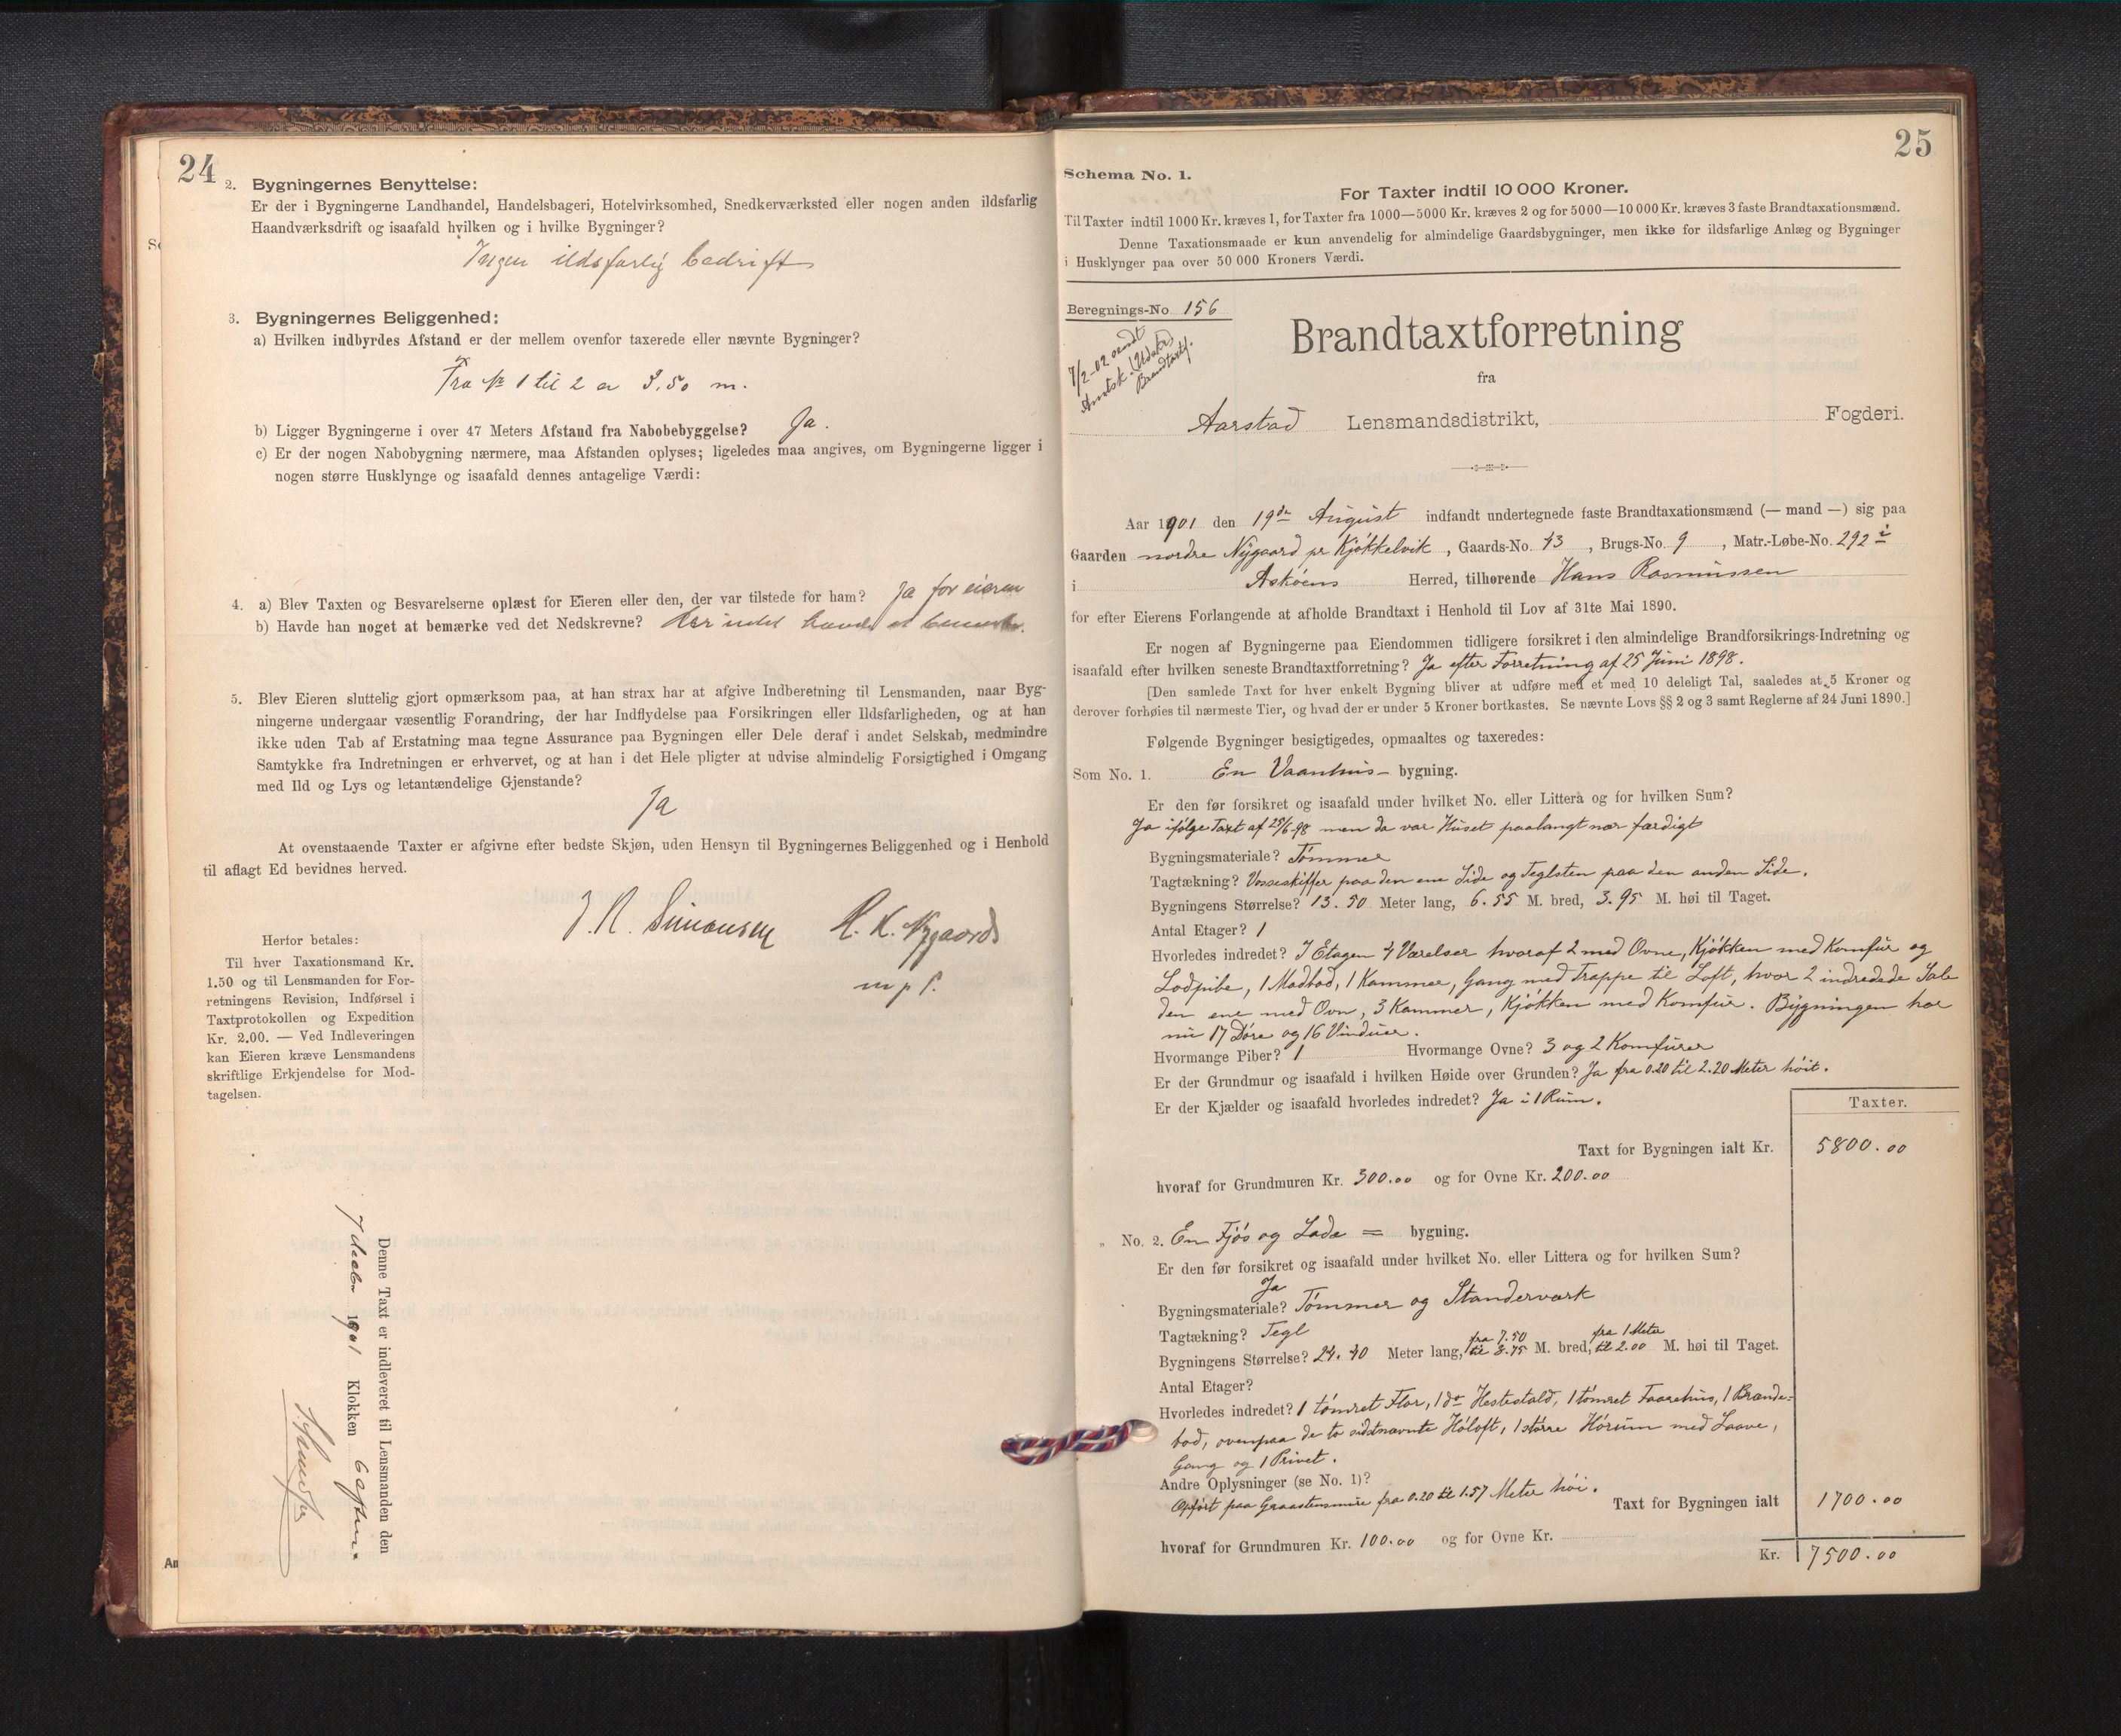 24
2. Bygningernes Benyttelse:
Er der i Bygningerne Landhandel, Handelsbageri, Hotelvirksomhed, Snedkerværksted eller nogen anden ildsfarlig
Haandværksdrift og isaafald hvilken og i hvilke Bygninger?
Ingen ildsfarlig bedrift
3. Bygningernes Beliggenhed:
a) Hvilken indbyrdes Afstand er der mellem ovenfor taxerede eller nævnte Bygninger?
Fra No 1 til 2 er 3.50 m.
b) Ligger Bygningerne i over 47 Meters Afstand fra Nabobebyggelse? Ja.
c) Er der nogen Nabobygning nærmere, maa Afstanden oplyses; ligeledes maa angives, om Bygningerne ligger i
nogen større Husklynge og isaafald dennes antagelige Værdi:
4. a) Blev Taxten og Besvarelserne oplæst for Eieren eller den, der var tilstede for ham? Ja for eieren
b) Havde han noget at bemærke ved det Nedskrevne? Har intet havde at bemærke.
5. Blev Eieren sluttelig gjort opmærksom paa, at han strax har at afgive Indberetning til Lensmanden, naar Byg-
ningerne undergaar væsentlig Forandring, der har Indflydelse paa Forsikringen eller Ildsfarligheden, og at han
ikke uden Tab af Erstatning maa tegne Assurance paa Bygningen eller Dele deraf i andet Selskab, medmindre
Samtykke fra Indretningen er erhvervet, og at han i det Hele pligter at udvise almindelig Forsigtighed i Omgang
med Ild og Lys og letantændelige Gjenstande?
Ja
At ovenstaaende Taxter er afgivne efter bedste Skjøn, uden Hensyn til Bygningernes Beliggenhed og i Henhold
til aflagt Ed bevidnes herved.
J. N. Simonsen H. K. Nygaard
m. p. P.
Herfor betales:
Til hver Taxationsmand Kr.
1.50 og til Lensmanden for For-
retningens Revision, Indførsel i
Taxtprotokollen og Expedition
Kr. 2.00. — Ved Indleveringen
kan Eieren kræve Lensmandens
skriftlige Erkjendelse for Mod-
tagelsen.
Denne Taxt er indleveret til Lensmanden den
7 decbr 1901 Klokken 6 aften.
25
Schema No. 1.
For Taxter indtil 10 000 Kroner.
Til Taxter indtil 1000 Kr. kræves 1, for Taxter fra 1000—5000 Kr. kræves 2 og for 5000—10 000 Kr. kræves 3 faste Brandtaxationsmænd.
Denne Taxationsmaade er kun anvendelig for almindelige Gaardsbygninger, men ikke for ildsfarlige Anlæg og Bygninger
i Husklynger paa over 50 000 Kroners Værdi.
Beregnings-No. 156
7/2-02 sendt
Amtsk. (Udskr)
Brandtaxtf.
Brandtaxtforretning
fra
Aarstad Lensmandsdistrikt, Fogderi.
Aar 1901 den 19de August indfandt undertegnede faste Brandtaxationsmænd (— mand —) sig paa
Gaarden nordre Nygaard pr Kjøkkelvik, Gaards-No. 43, Brugs-No. 9, Matr.-Løbe-No. 292 i
i Askøens Herred, tilhørende Hans Rasmussen
for efter Eierens Forlangende at afholde Brandtaxt i Henhold til Lov af 31te Mai 1890.
Er nogen af Bygningerne paa Eiendommen tidligere forsikret i den almindelige Brandforsikrings-Indretning og
isaafald efter hvilken seneste Brandtaxtforretning? Ja efter Forretning af 25 Juni 1898.
[Den samlede Taxt for hver enkelt Bygning bliver at udføre med et med 10 deleligt Tal, saaledes at 5 Kroner og
derover forhøies til nærmeste Tier, og hvad der er under 5 Kroner bortkastes. Se nævnte Lovs §§ 2 og 3 samt Reglerne af 24 Juni 1890.]
Følgende Bygninger besigtigedes, opmaaltes og taxeredes:
Som No. 1. En Vaanhus- bygning.
Er den før forsikret og isaafald under hvilket No. eller Littera og for hvilken Sum?
Ja ifølge Taxt af 25/6-98 men da var Huset paalangt nær færdigt
Bygningsmateriale? Tømmer
Tagtækning? Vosseskiffer paa den ene Side og Teglsten paa den anden Side.
Bygningens Størrelse? 13.50 Meter lang, 6.55 M. bred, 3.95 M. høi til Taget.
Antal Etager? 1
Hvorledes indredet? I Etagen 4 Værelser hvoraf 2 med Ovne, Kjøkken med Komfur og
Lodpibe, 1 Madbod, 1 Kammer, Gang med Trappe til Loft, hvor 2 indredede Sale
den ene med Ovn, 3 Kammer, Kjøkken med Komfur. Bygningen har
nu 17 Døre og 16 Vinduer.
Hvormange Piber? 1 Hvormange Ovne? 3 og 2 Komfurer
Er der Grundmur og isaafald i hvilken Høide over Grunden? Ja fra 0.20 til 2.20 Meter høit.
Er der Kjælder og isaafald hvorledes indredet? Ja i 1 Rum.
Taxter.
Taxt for Bygningen ialt Kr. 5800.00
hvoraf for Grundmuren Kr. 300.00 og for Ovne Kr. 200.00
„ No. 2. En Fjøs og Lade = bygning.
Er den før forsikret og isaafald under hvilket No. eller Littera og for hvilken Sum?
Ja
Bygningsmateriale? Tømmer og Standerværk
Tagtækning? Tegl
Bygningens Størrelse? 24.40 Meter lang, fra 7.50 til 8.75 M. bred, fra 1 Meter til 2.00 M. høi til Taget.
Antal Etager?
Hvorledes indredet? 1 tømret Flor, 1 do Hestestald, 1 tømret Faarehus, 1 Brænde-
bod, ovenpaa de to sidstnævnte Høloft, 1 større Hørum med Laave,
Gang og 1 Privet.
Andre Oplysninger (se No. 1)?
Opført paa Graastensmure fra 0.20 til 1.57 Meter høi.
Taxt for Bygningen ialt 1700.00
hvoraf for Grundmuren Kr. 100.00 og for Ovne Kr.
Kr. 7500.00